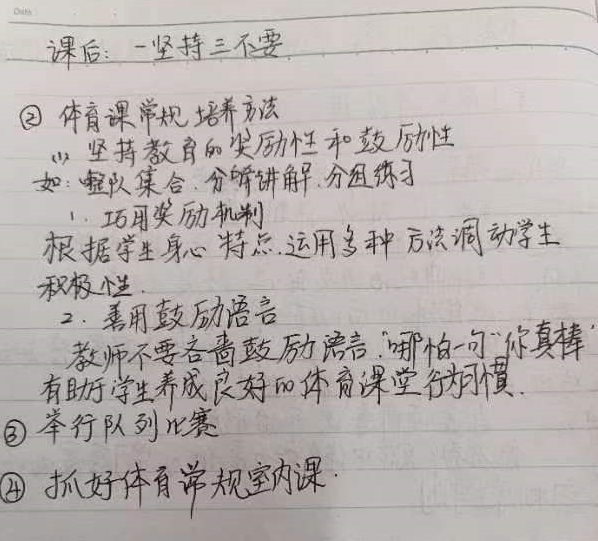 Date
课后：一坚持三不要
② 体育课常规培养方法
(1) 坚持教育的奖励性和鼓励性
如：整队集合.分解讲解.分组练习
1. 巧用奖励机制
根据学生身心特点.运用多种方法调动学生
积极性.
2. 善用鼓励语言
教师不要吝啬鼓励语言."哪怕一句"你真棒"
有助于学生养成良好的体育课堂行为习惯.
③ 举行队列比赛
④ 抓好体育常规室内课.